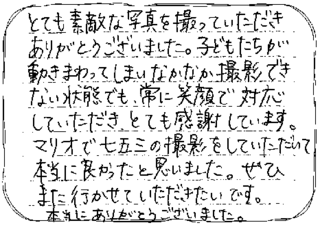 とても素敵な写真を撮っていただき
ありがとうございました。子どもたちが
動きまわってしまいなかなか撮影でき
ない状態でも、常に笑顔で対応
していただき、とても感謝しています。
マリオで七五三の撮影をしていただいて
本当に良かったと思いました。ぜひ
また行かせていただきたいです。
本当にありがとうございました。